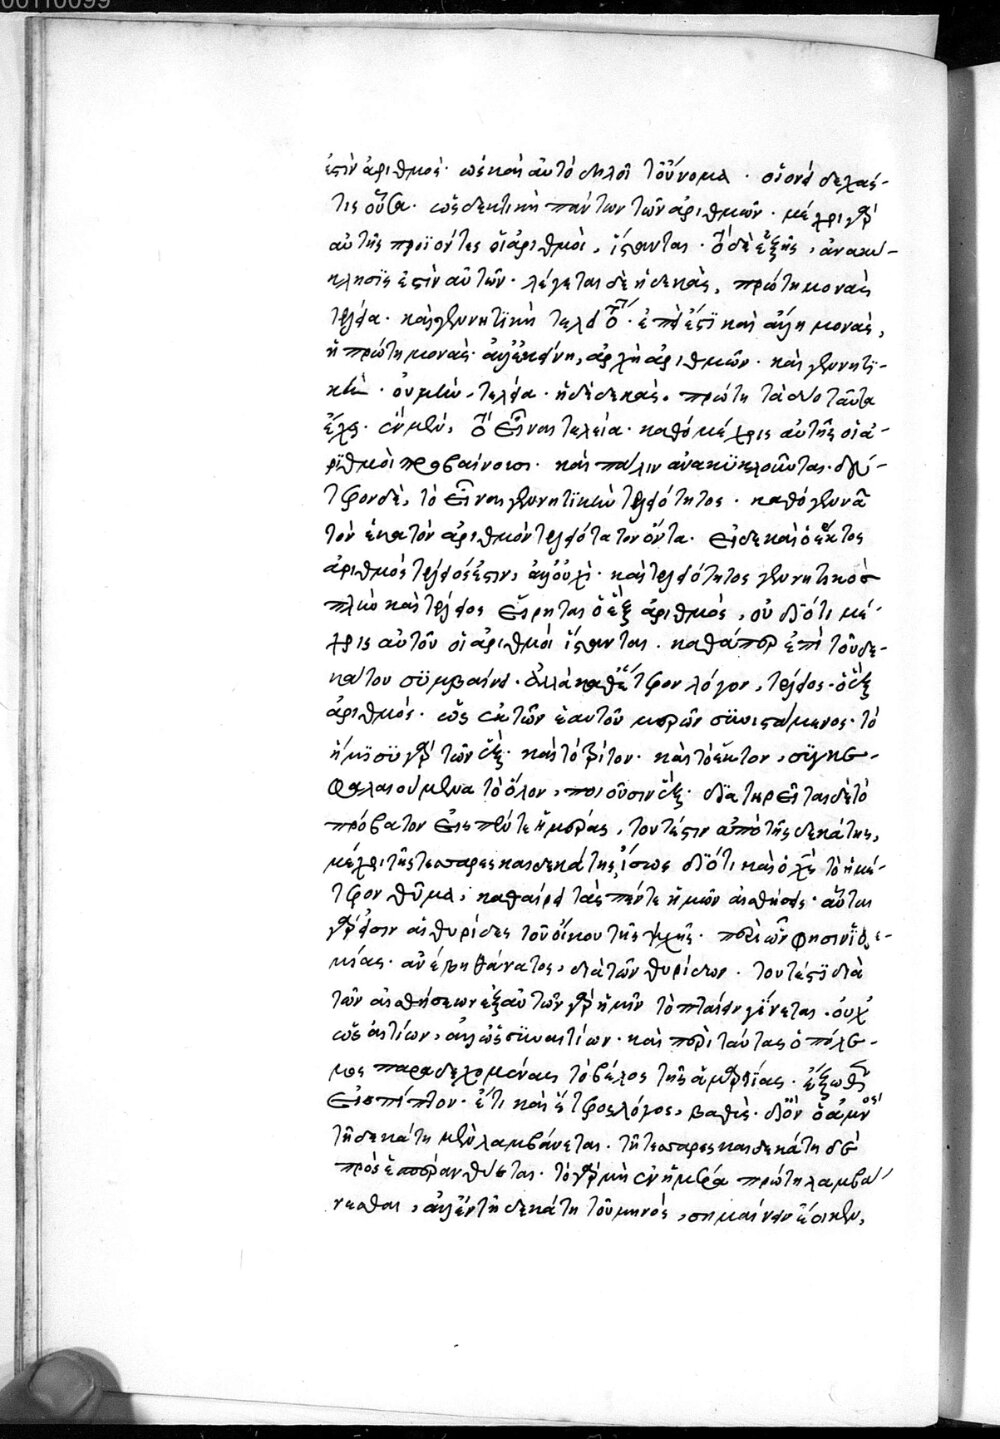 00110099
ἐστὶν ἀριθμός· ὡς καὶ αὐτὸ δηλοῖ τοὔνομα· οἱονεὶ δεχάς-
τις οὖσα· ὡς δεκτικὴ πάντων τῶν ἀριθμῶν· μέχρι γὰρ
αὐτῆς προϊόντες οἱ ἀριθμοὶ, ἵστανται· ὁ δὲ ἑξῆς, ἀνακύ-
κλησις ἐστὶν αὐτῶν· λέγεται δὲ ἡ δεκὰς, πρώτη μονὰς
τελεία· καὶ γεννητικὴ τελειότητος· ἐπεὶ ἔστι καὶ ἄλλη μονὰς,
ἡ πρώτη μονὰς· ἀλλ' ἐκείνη, ἀρχὴ ἀριθμῶν· καὶ γεννητι-
κὴ· οὐ μὴν, τελεία· ἡ δὲ δεκὰς, πρώτη τὰ δύο ταῦτα
ἔχει· ἓν μὲν, τὸ εἶναι τελεία· καθὸ μέχρις αὐτῆς οἱ ἀ-
ριθμοὶ προβαίνουσι· καὶ πάλιν ἀνακυκλοῦνται· δεύ-
τερον δὲ, τὸ εἶναι γεννητικὴν τελειότητος· καθὸ γεννᾶ
τὸν ἑκατὸν ἀριθμὸν τελειότατον ὄντα· εἰ δὲ καὶ ὁ ἕκτος
ἀριθμὸς τέλειός ἐστιν, ἀλλ' οὐχὶ· καὶ τελειότητος γεννητικός
πλὴν καὶ τέλειος εἴρηται ὁ ἓξ ἀριθμὸς, οὐ διότι μέ-
χρις αὐτοῦ οἱ ἀριθμοὶ ἵστανται· καθάπερ ἐπὶ τοῦ δε-
κάτου συμβαίνει· ἀλλὰ καθ' ἕτερον λόγον, τέλειος ὁ ἓξ
ἀριθμὸς· ὡς ἐκ τῶν ἑαυτοῦ μερῶν συνιστάμενος· τὸ
ἥμισυ γὰρ τῶν ἓξ· καὶ τὸ τρίτον· καὶ τὸ ἕκτον, συγκε-
φαλαιούμενα τὸ ὅλον, ποιοῦσιν ἓξ· διατηρεῖται δὲ τὸ
πρόβατον εἰς πέντε ἡμέρας, τουτέστιν ἀπὸ τῆς δεκάτης,
μέχρι τῆς τεσσαρεσκαιδεκάτης, ἴσως διότι καὶ ὁ χριστὸς τὸ ἡμέ-
τερον θῦμα, καθαίρει τὰς πέντε ἡμῶν αἰσθήσεις· αὗται
γάρ εἰσιν αἱ θυρίδες τοῦ οἴκου τῆς ψυχῆς· περὶ ὧν φησὶν ἱερε-
μίας· ἀνέβη θάνατος, διὰ τῶν θυρίδων· τουτέστι διὰ
τῶν αἰσθήσεων ἐξ αὐτῶν γὰρ ἡμῖν τὸ πταίειν γίνεται· οὐχ
ὡς αἰτίων, ἀλλ' ὡς συναιτίων· καὶ περὶ ταύτας ὁ πόλε-
μος παραδεχομένας τὸ βέλος τῆς ἁμαρτίας· ἔξωθεν
εἰσπίπτον· ἔτι καὶ ἕτερος λόγος, βαθὺς· διὸν ὁ ἀμνὸς
τῇ δεκάτῃ μὲν λαμβάνεται· τῇ τεσσαρεσκαιδεκάτῃ δὲ
πρὸς ἑσπέραν θύεται· τὸ γὰρ μὴ ἐν ἡμέρα πρώτη λαμβά-
νεσθαι, ἀλλ' ἐν τῇ δεκάτῃ τοῦ μηνὸς, σημαίνειν ἔοικεν,